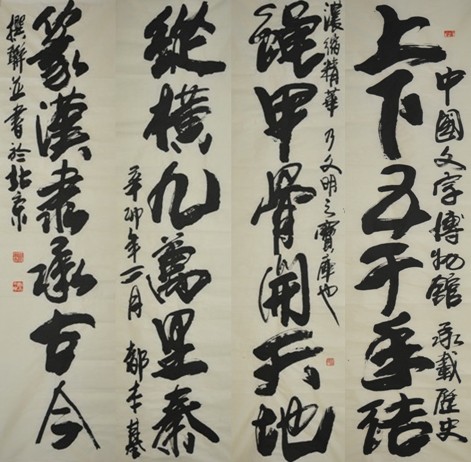 中國文字博物館 承載歷史
上下五千年結
濃縮精華 乃文明之寶庫也
繩甲骨開天地
縱橫九萬里秦
辛卯年 月 都本基
篆漢隶承古今
撰聯並書於北京